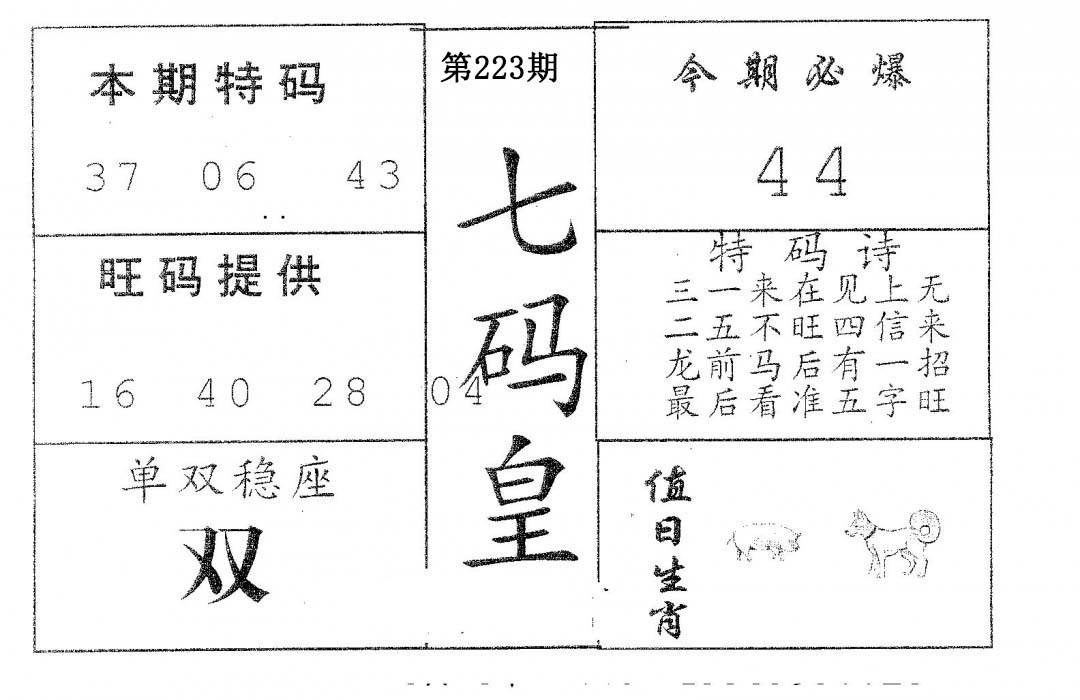 本期特码
37 06 43
旺码提供
16 40 28 04
单双稳座
双
第223期
七码皇
今期必爆
44
特码诗
三一来在见上无
二五不旺四信来
龙前马后有一招
最后看准五字旺
值日生肖